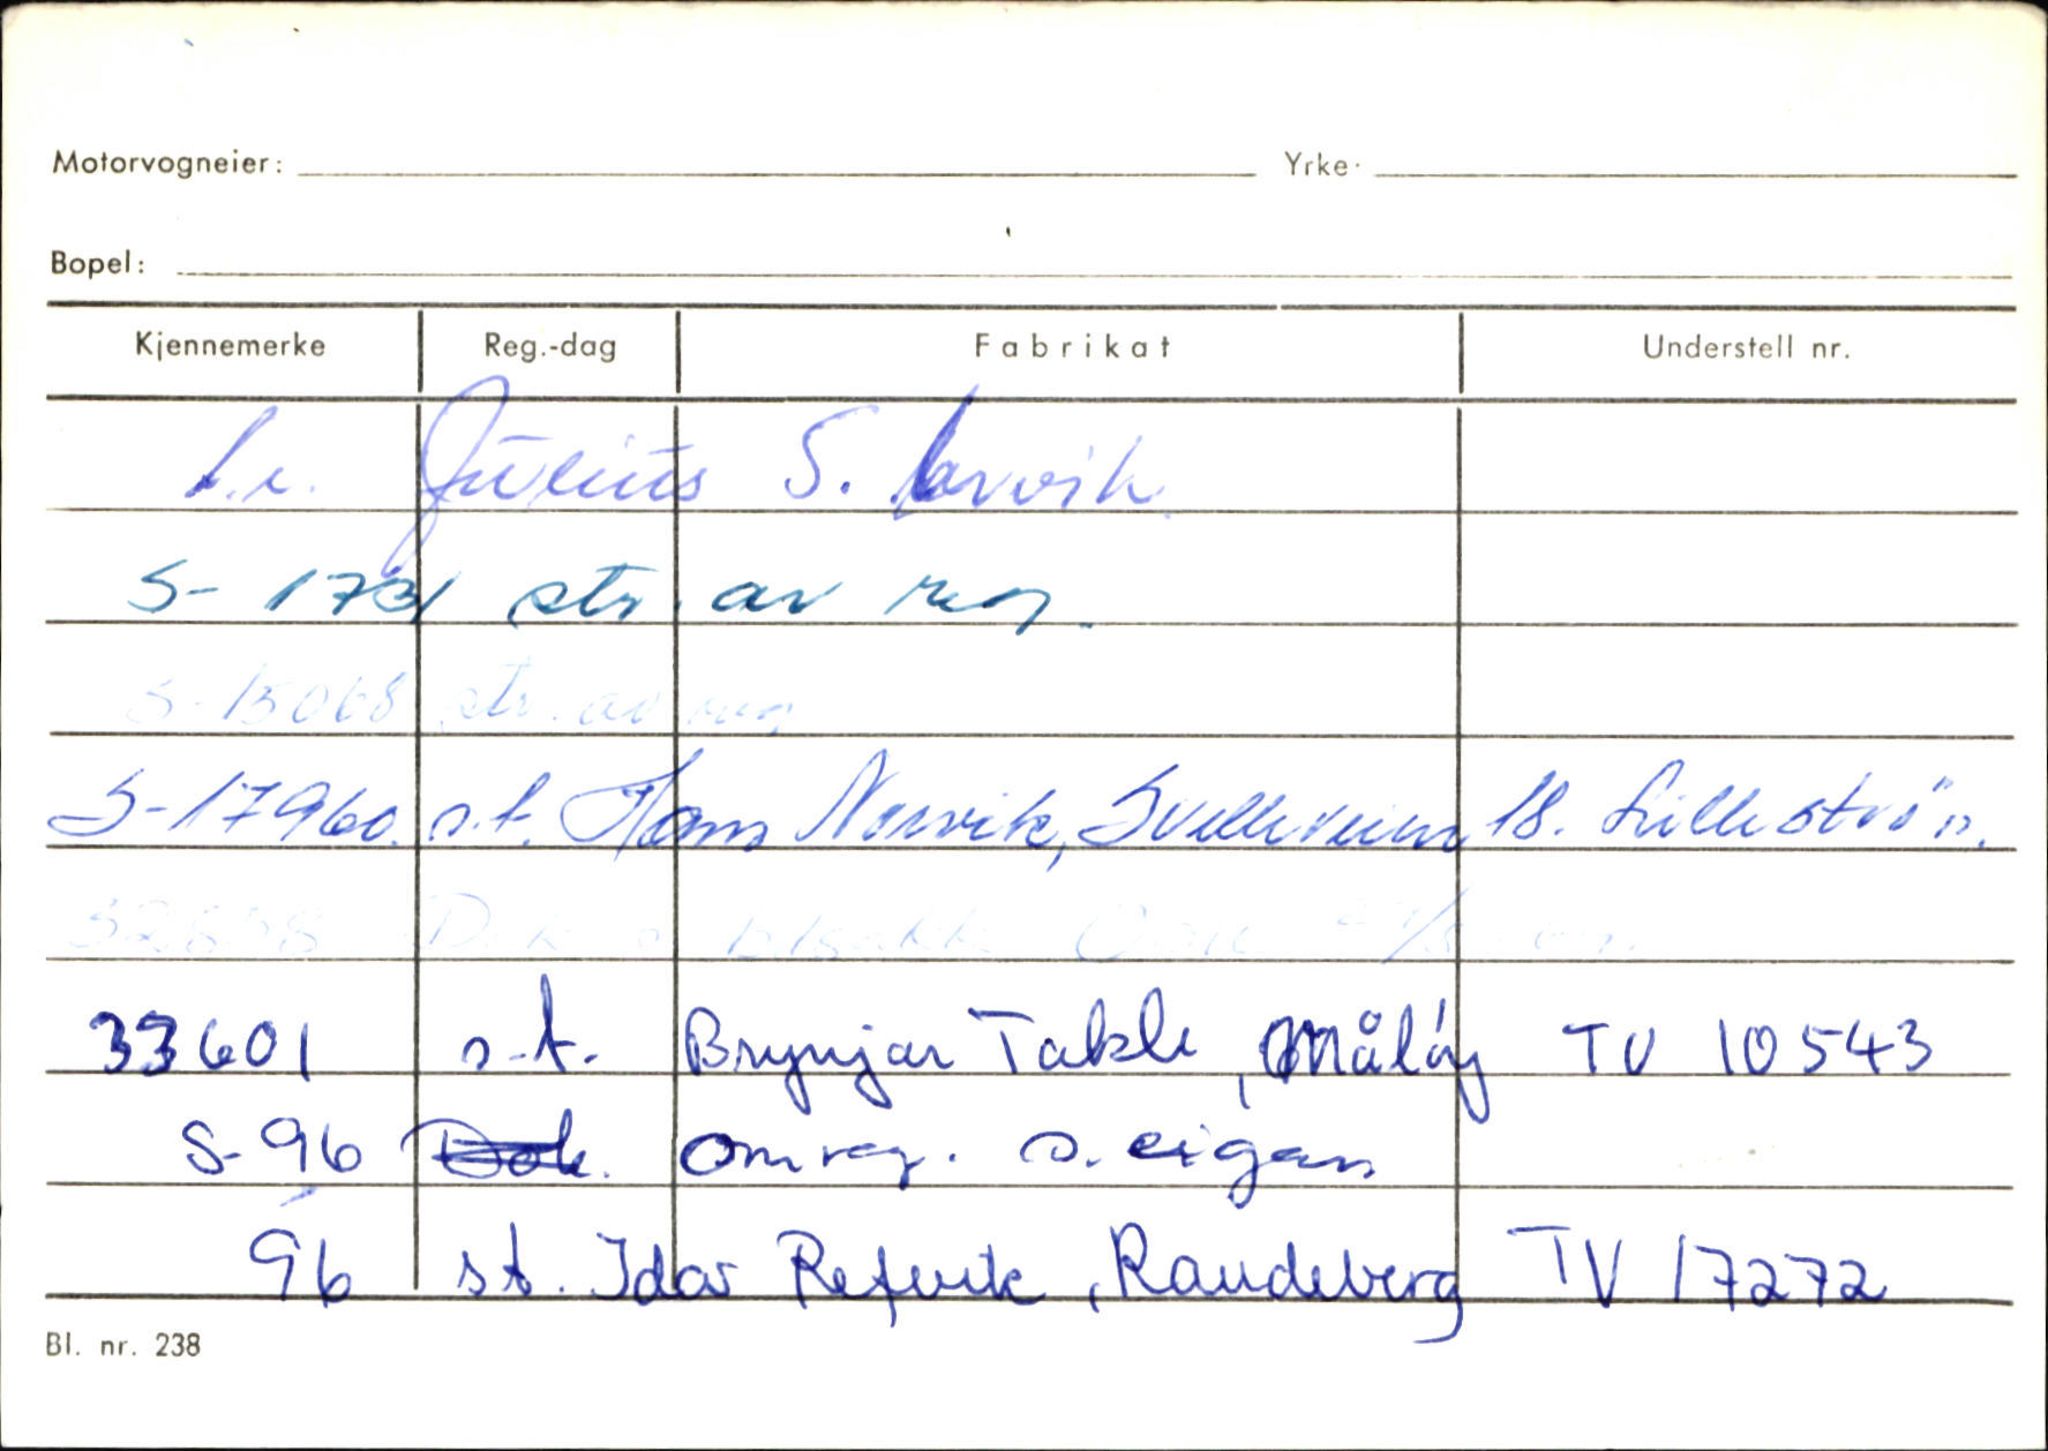 Motorvogneier: Yrke:
Bopel:
Kjennemerke Reg.-dag Fabrikat Understell nr.
Julius S.
S-1731 str. av reg.
S-15068 str. av reg
S-17960. s.t. Hans Norvik, 18. Lilleström.
33601 s.t. Brynjar Takle, Måløy TV 10543
S-96 Dok. omreg. s. eigar
96 st. Idar Refvik, Raudeberg TV 17272
Bl. nr. 238